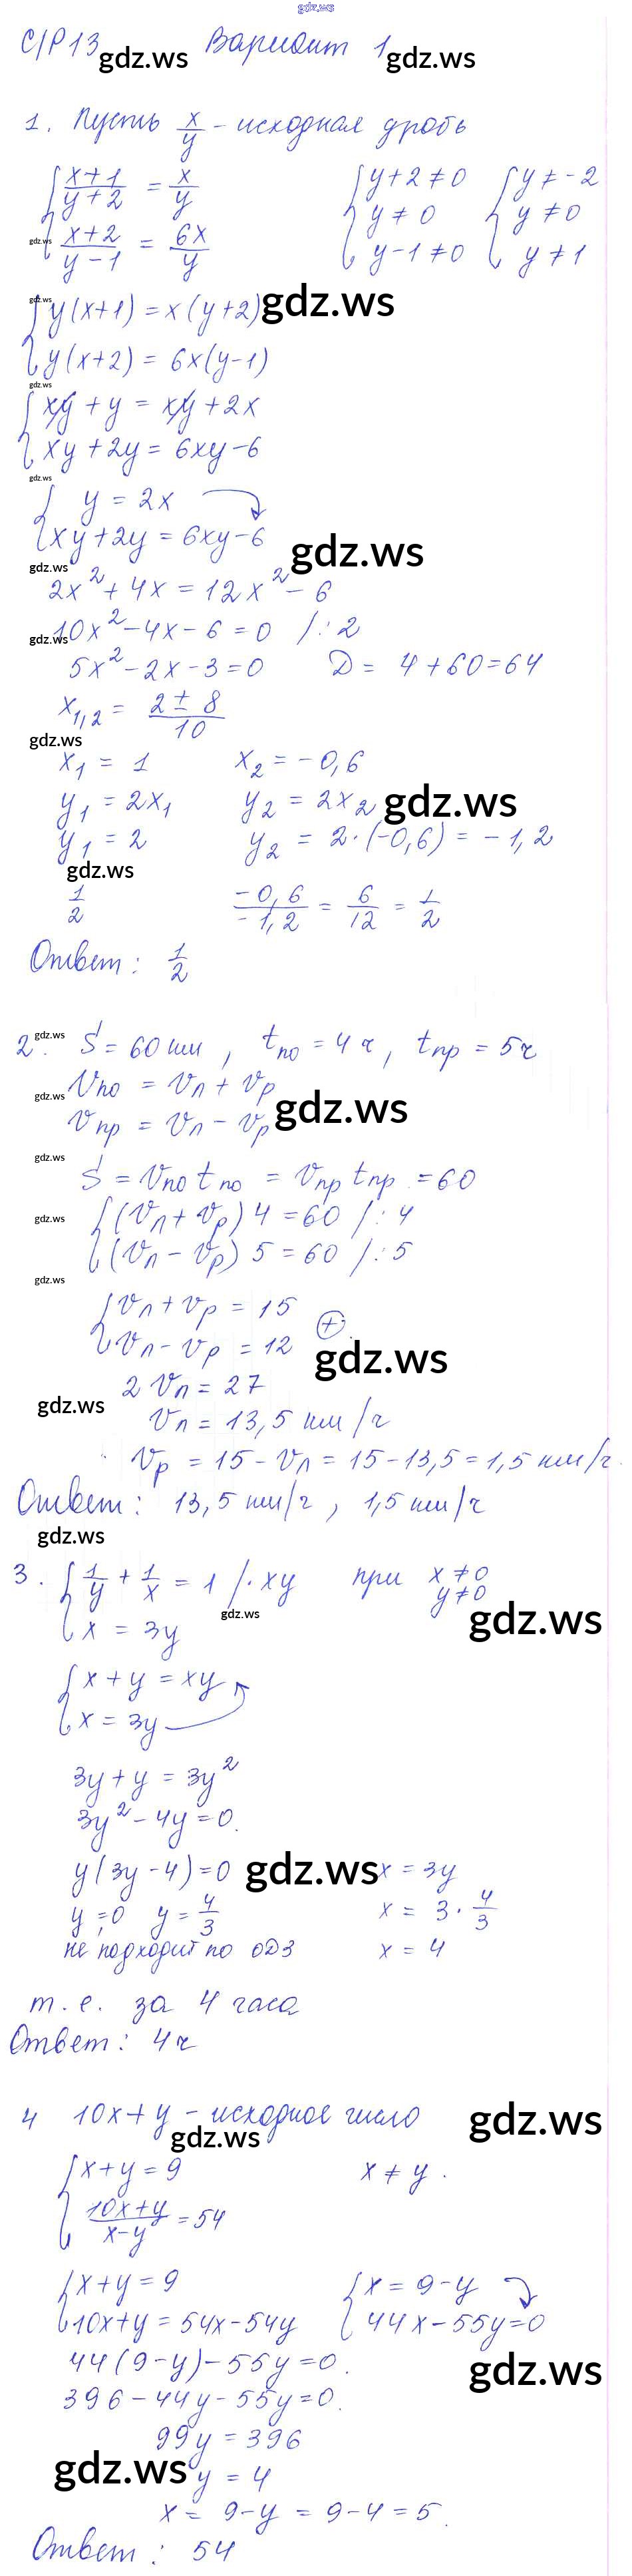 gdz.ws
С/Р13 Вариант 1
gdz.ws gdz.ws
1. Пусть x/y - исходная дробь
{ (x+1)/(y+2) = x/y { y+2≠0 { y≠-2
y≠0 y≠0
gdz.ws (x+2)/(y-1) = 6x/y y-1≠0 y≠1
gdz.ws
{ y(x+1) = x(y+2) gdz.ws
y(x+2) = 6x(y-1)
gdz.ws
{ xy + y = xy + 2x
xy + 2y = 6xy - 6
gdz.ws
{ y = 2x
xy + 2y = 6xy - 6 gdz.ws
gdz.ws
2x² + 4x = 12x² - 6
gdz.ws 10x² - 4x - 6 = 0 /: 2
5x² - 2x - 3 = 0 D = 4 + 60 = 64
x1,2 = (2 ± 8)/10
gdz.ws
x1 = 1 x2 = -0,6
y1 = 2x1 y2 = 2x2 gdz.ws
y1 = 2 y2 = 2·(-0,6) = -1,2
gdz.ws
1/2 -0,6/-1,2 = 6/12 = 1/2
Ответ: 1/2
gdz.ws
2. S = 60 км, tпо = 4 ч, tпр = 5ч
gdz.ws Vпо = Vл + Vр
gdz.ws
Vпр = Vл - Vр
gdz.ws
S = Vпо tпо = Vпр tпр = 60
gdz.ws { (Vл + Vр) 4 = 60 /: 4
(Vл - Vр) 5 = 60 /: 5
gdz.ws
{ Vл + Vр = 15
Vл - Vр = 12 (+)
gdz.ws
2 Vл = 27
gdz.ws
Vл = 13,5 км/ч
Vр = 15 - Vл = 15 - 13,5 = 1,5 км/ч.
Ответ: 13,5 км/ч, 1,5 км/ч
gdz.ws
3. { 1/y + 1/x = 1 /· xy при x≠0
y≠0
gdz.ws gdz.ws
x = 3y
{ x + y = xy
x = 3y
3y + y = 3y²
3y² - 4y = 0.
y(3y - 4) = 0 gdz.ws x = 3y
y = 0 y = 4/3 x = 3 · 4/3
не подходит по ОДЗ x = 4
т. е. за 4 часа
Ответ: 4ч
4 10x + y - исходное число gdz.ws
gdz.ws
{ x + y = 9 x ≠ y.
(10x + y)/(x - y) = 54
{ x + y = 9 { x = 9 - y
10x + y = 54x - 54y 44x - 55y = 0
44(9 - y) - 55y = 0. gdz.ws
396 - 44y - 55y = 0.
99y = 396
gdz.ws y = 4
x = 9 - y = 9 - 4 = 5.
Ответ: 54